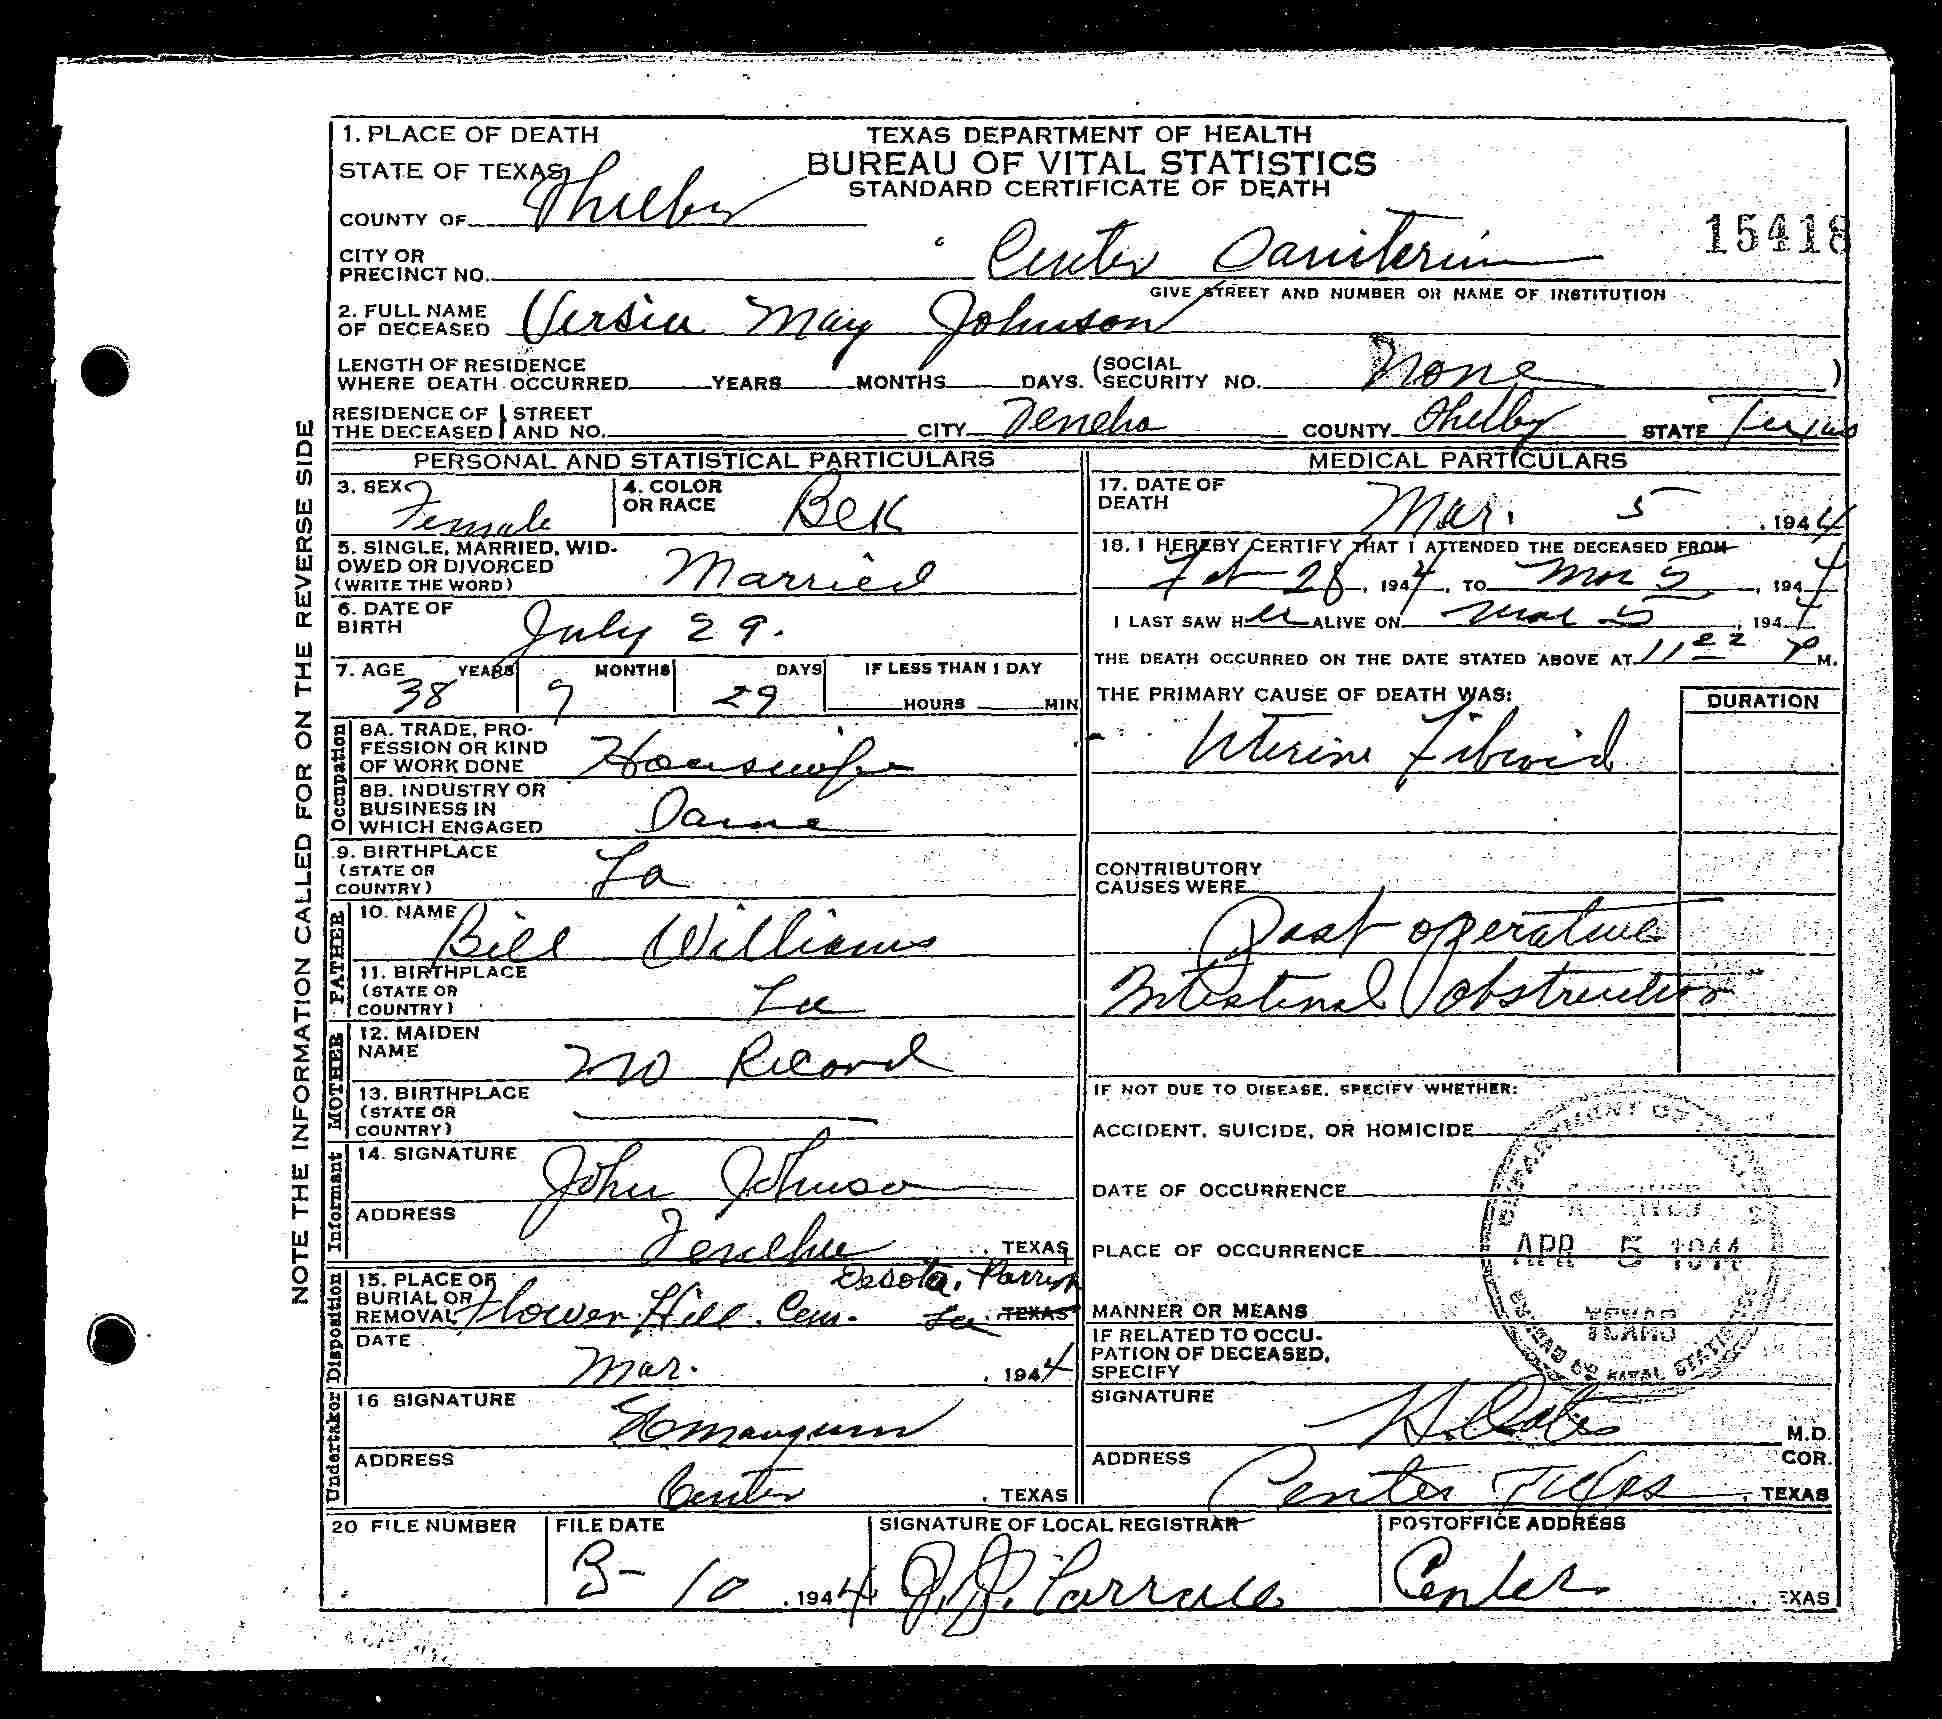 1. PLACE OF DEATH
TEXAS DEPARTMENT OF HEALTH
STATE OF TEXAS
BUREAU OF VITAL STATISTICS
STANDARD CERTIFICATE OF DEATH
COUNTY OF Shelby
15418
CITY OR
PRECINCT NO.
Center Saniterium
GIVE STREET AND NUMBER OR NAME OF INSTITUTION
2. FULL NAME
OF DECEASED May Johnson
LENGTH OF RESIDENCE
WHERE DEATH OCCURRED YEARS MONTHS DAYS. (SOCIAL SECURITY NO. None)
RESIDENCE OF THE DECEASED STREET AND NO. CITY Teneha COUNTY Shelby STATE Texas
PERSONAL AND STATISTICAL PARTICULARS
3. SEX Female
4. COLOR OR RACE Blk
5. SINGLE, MARRIED, WID-
OWED OR DIVORCED
(WRITE THE WORD) Married
6. DATE OF
BIRTH July 29.
7. AGE YEARS MONTHS DAYS IF LESS THAN 1 DAY
38 9 29 HOURS MIN
Occupation
8A. TRADE, PRO-
FESSION OR KIND
OF WORK DONE Housewife
8B. INDUSTRY OR
BUSINESS IN
WHICH ENGAGED Same
9. BIRTHPLACE
(STATE OR
COUNTRY) La
FATHER
10. NAME Bill Williams
11. BIRTHPLACE
(STATE OR
COUNTRY) La
MOTHER
12. MAIDEN
NAME No Record
13. BIRTHPLACE
(STATE OR
COUNTRY)
Informant
14. SIGNATURE John Johnson
ADDRESS Teneha, TEXAS
Disposition
15. PLACE OF
BURIAL OR
REMOVAL Flower Hill. Cem. Desota, Parrish La. TEXAS
DATE Mar. , 1944
Undertaker
16 SIGNATURE Mangum
ADDRESS Center, TEXAS
MEDICAL PARTICULARS
17. DATE OF
DEATH Mar. 5, 1944
18. I HEREBY CERTIFY THAT I ATTENDED THE DECEASED FROM
Feb 28, 1944, TO Mar 5, 1944
I LAST SAW HER ALIVE ON Mar 5, 1944
THE DEATH OCCURRED ON THE DATE STATED ABOVE AT 11 P M.
THE PRIMARY CAUSE OF DEATH WAS:
DURATION
Uterine Fibroid
CONTRIBUTORY
CAUSES WERE
Post operative
Intestinal obstruction
IF NOT DUE TO DISEASE, SPECIFY WHETHER:
ACCIDENT, SUICIDE, OR HOMICIDE
DATE OF OCCURRENCE
PLACE OF OCCURRENCE
MANNER OR MEANS
IF RELATED TO OCCU-
PATION OF DECEASED,
SPECIFY
APR 5 1944
TEXAS
SIGNATURE M.D.
COR.
ADDRESS Center Texas, TEXAS
20 FILE NUMBER
FILE DATE 3-10, 1944
SIGNATURE OF LOCAL REGISTRAR
POSTOFFICE ADDRESS Center
EXAS
NOTE THE INFORMATION CALLED FOR ON THE REVERSE SIDE